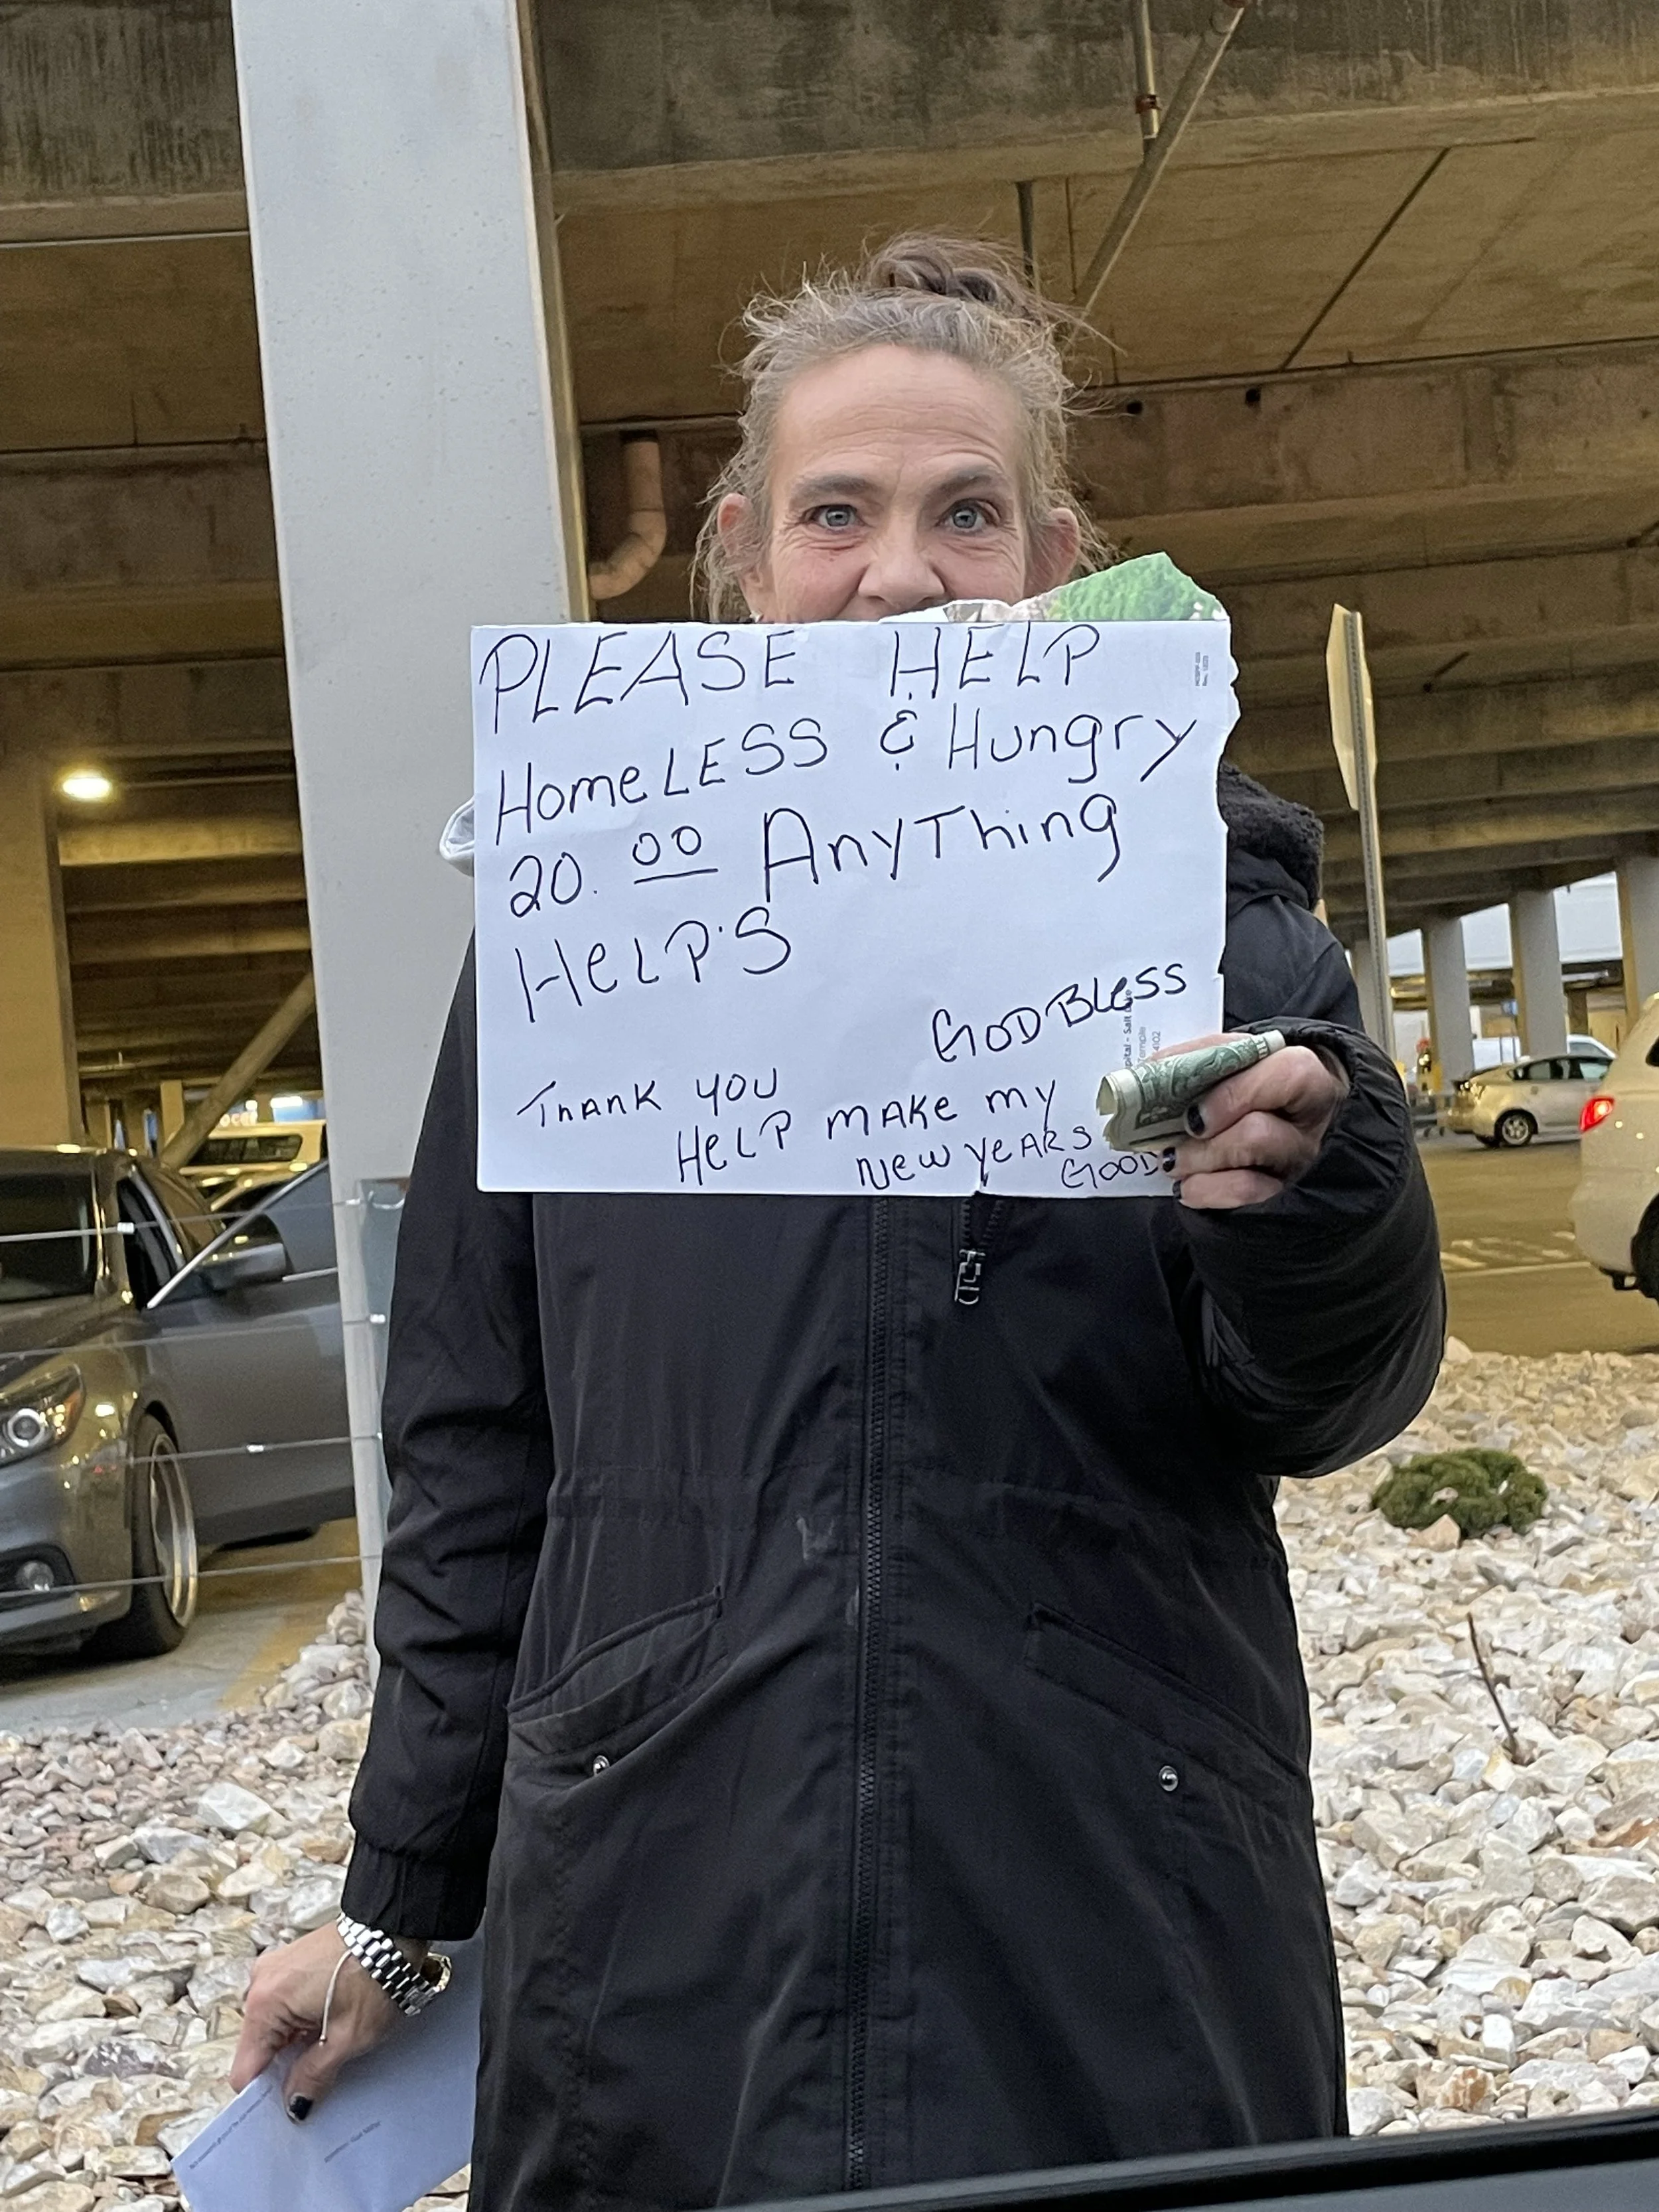 PLEASE HELP
HomeLESS & Hungry
20.00 AnyThing
HeLP'S
GOD BLeSS
THANK YOU
HeLP MAKe my
New YeARS
GOOD